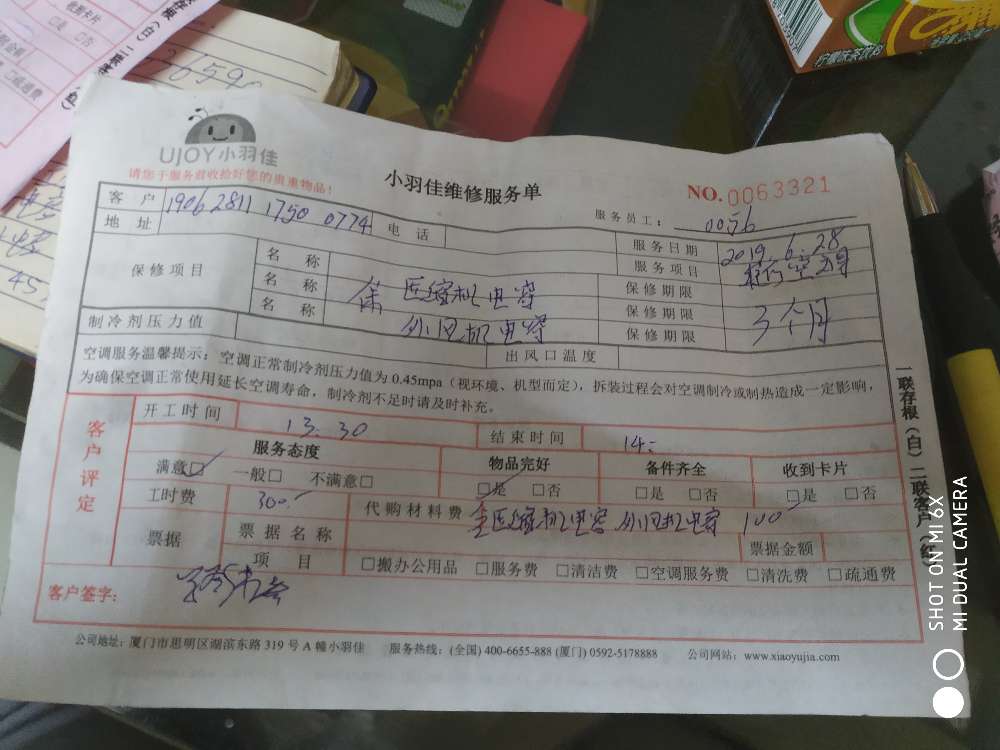 UJOY小羽佳
请您于服务前收拾好您的贵重物品!
小羽佳维修服务单
NO.0063321
服务员工: 0056
客 户 1906 2811 1750 0774
地 址
电 话
服务日期 2019.6.28
服务项目
保修项目
名 称
保修期限
名 称 压缩机电容
保修期限 3个月
名 称 外风机电容
保修期限
制冷剂压力值
出风口温度
空调服务温馨提示:空调正常制冷剂压力值为 0.45mpa(视环境、机型而定),拆装过程会对空调制冷或制热造成一定影响,
为确保空调正常使用延长空调寿命,制冷剂不足时请及时补充。
客户评定
开工时间 13:30
结束时间 14:
服务态度
物品完好
备件齐全
收到卡片
满意□ 一般□ 不满意□
□是 □否
□是 □否
□是 □否
工时费 300
代购材料费 压缩机电容 外风机电容 100
票据
票据名称
票据金额
项 目
□搬办公用品 □服务费 □清洁费 □空调服务费 □清洗费 □疏通费
客户签字:
公司地址:厦门市思明区湖滨东路 319 号 A 幢小羽佳 服务热线:(全国) 400-6655-888 (厦门) 0592-5178888 公司网站:www.xiaoyujia.com
一联存根(白)二联客户(红)
SHOT ON MI 6X
MI DUAL CAMERA
柠檬味茶饮料
收到卡片
□是 □否
659
45